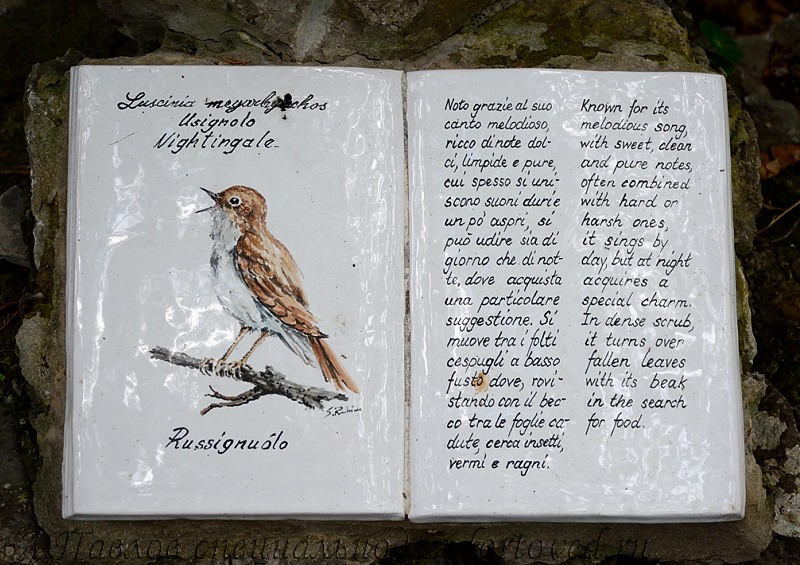 Luscinia megarhynchos
Usignolo
Nightingale
Russignuólo
Noto grazie al suo
canto melodioso,
ricco di note dol-
ci, limpide e pure,
cui spesso si uni-
scono suoni duri e
un pò aspri, si
può udire sia di
giorno che di not-
te, dove acquista
una particolare
suggestione. Si
muove tra i folti
cespugli a basso
fusto dove, rovi-
stando con il bec-
co tra le foglie ca-
dute, cerca insetti,
vermi e ragni.
Known for its
melodious song,
with sweet, clean
and pure notes,
often combined
with hard or
harsh ones,
it sings by
day, but at night
acquires a
special charm.
In dense scrub,
it turns over
fallen leaves
with its beak
in the search
for food.
Павлов специально для fortoved.ru